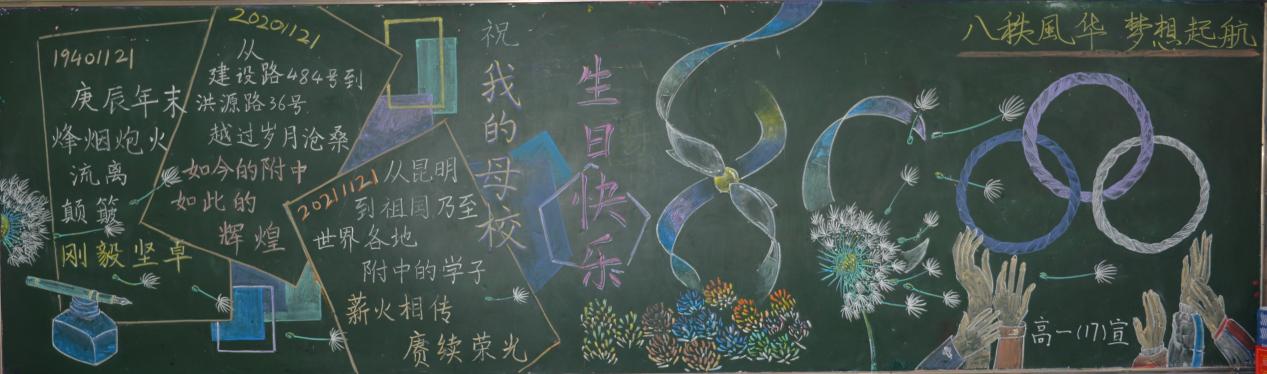 19401121
庚辰年末
烽烟炮火
流离
颠簸
刚毅坚卓
20201121
从
建设路484号到
洪源路36号
越过岁月沧桑
如今的附中
如此的
辉煌
20211121
从昆明
到祖国乃至
世界各地
附中的学子
薪火相传
赓续荣光
祝我的母校
生日快乐
八秩風华 梦想起航
高一(17)宣